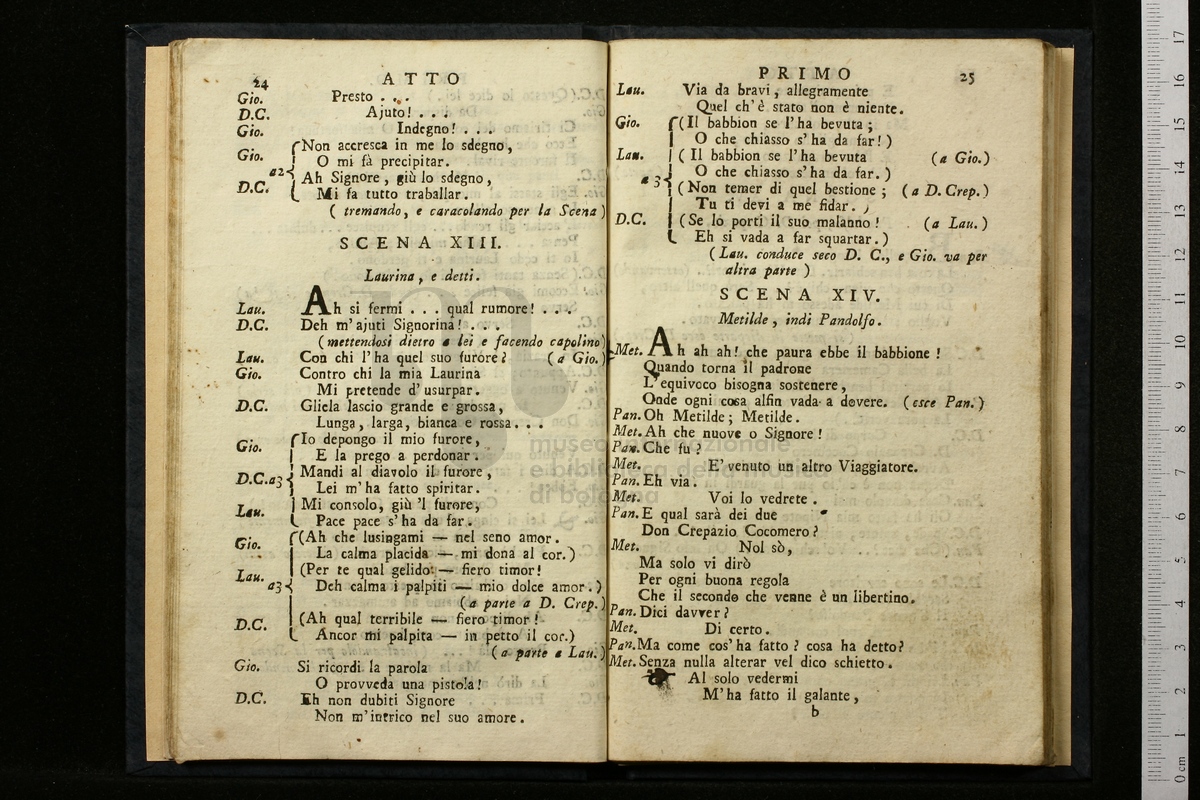 24 ATTO
Gio. Presto . . .
D.C. Ajuto! . . .
Gio. Indegno! . . .
Gio. Non accresca in me lo sdegno,
O mi fà precipitar.
a2
D.C. Ah Signore, giù lo sdegno,
Mi fa tutto traballar.
( tremando, e caracolando per la Scena )
SCENA XIII.
Laurina, e detti.
Lau. Ah si fermi . . . qual rumore! . . .
D.C. Deh m'ajuti Signorina! . . .
(mettendosi dietro a lei e facendo capolino)
Lau. Con chi l'ha quel suo furore? (a Gio.)
Gio. Contro chi la mia Laurina
Mi pretende d'usurpar.
D.C. Gliela lascio grande e grossa,
Lunga, larga, bianca e rossa. . .
Gio. Io depongo il mio furore,
E la prego a perdonar.
D.C. a3 Mandi al diavolo il furore,
Lei m'ha fatto spiritar.
Lau. Mi consolo, giù 'l furore,
Pace pace s'ha da far.
Gio. (Ah che lusingami — nel seno amor.
La calma placida — mi dona al cor.)
Lau. (Per te qual gelido — fiero timor!
a3 Deh calma i palpiti — mio dolce amor.)
(a parte a D. Crep.)
D.C. (Ah qual terribile — fiero timor!
Ancor mi palpita — in petto il cor.)
(a parte a Lau.)
Gio. Si ricordi la parola
O provveda una pistola!
D.C. Eh non dubiti Signore
Non m'intrico nel suo amore.
PRIMO 25
Lau. Via da bravi, allegramente
Quel ch'è stato non è niente.
Gio. (Il babbion se l'ha bevuta;
O che chiasso s'ha da far!)
Lau. ( Il babbion se l'ha bevuta (a Gio.)
O che chiasso s'ha da far. )
a 3 (Non temer di quel bestione; (a D. Crep.)
Tu ti devi a me fidar. )
D.C. (Se lo porti il suo malanno! (a Lau.)
Eh si vada a far squartar.)
(Lau. conduce seco D. C., e Gio. va per
altra parte )
SCENA XIV.
Metilde, indi Pandolfo.
Met. Ah ah ah! che paura ebbe il babbione!
Quando torna il padrone
L'equivoco bisogna sostenere,
Onde ogni cosa alfin vada a dovere. (esce Pan.)
Pan. Oh Metilde; Metilde.
Met. Ah che nuove o Signore!
Pan. Che fu?
Met. E' venuto un altro Viaggiatore.
Pan. Eh via.
Met. Voi lo vedrete.
Pan. E qual sarà dei due
Don Crepazio Cocomero?
Met. Nol sò,
Ma solo vi dirò
Per ogni buona regola
Che il secondo che venne è un libertino.
Pan. Dici davver?
Met. Di certo.
Pan. Ma come cos'ha fatto? cosa ha detto?
Met. Senza nulla alterar vel dico schietto.
Al solo vedermi
M'ha fatto il galante,
b
museo internazionale
e biblioteca della musica
di bologna
0 cm 1 2 3 4 5 6 7 8 9 10 11 12 13 14 15 16 17